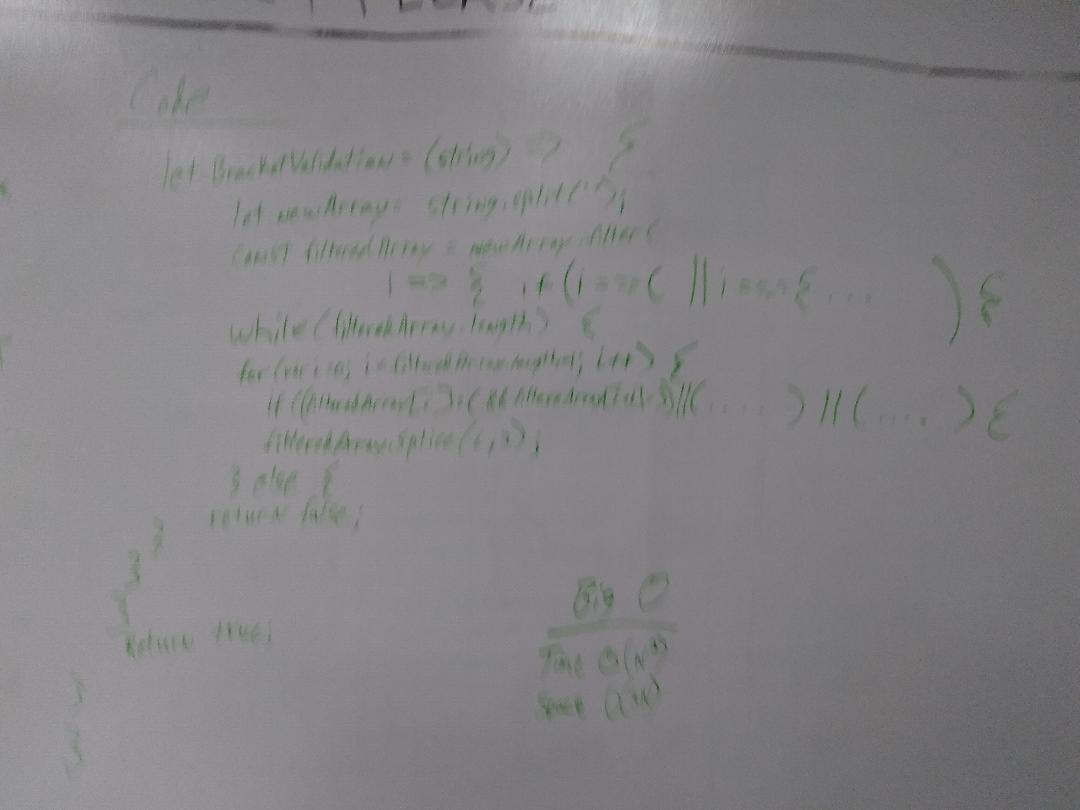 PLEASE
Code
let BracketValidation = (string) => {
let newArray = string.split('');
const filteredArray = newArray.filter(
i => { if (i === ( || i === { ... ) {
while (filteredArray.length) {
for (var i=0; i < filteredArray.length; i++) {
if ((filteredArray[i] = ( && filteredArray[i+1] = )) || (.....) || (.....) {
filteredArray.splice(i, 2);
} else {
return false;
}
}
}
return true;
}
}
Big O
Time O(N²)
Space O(N)